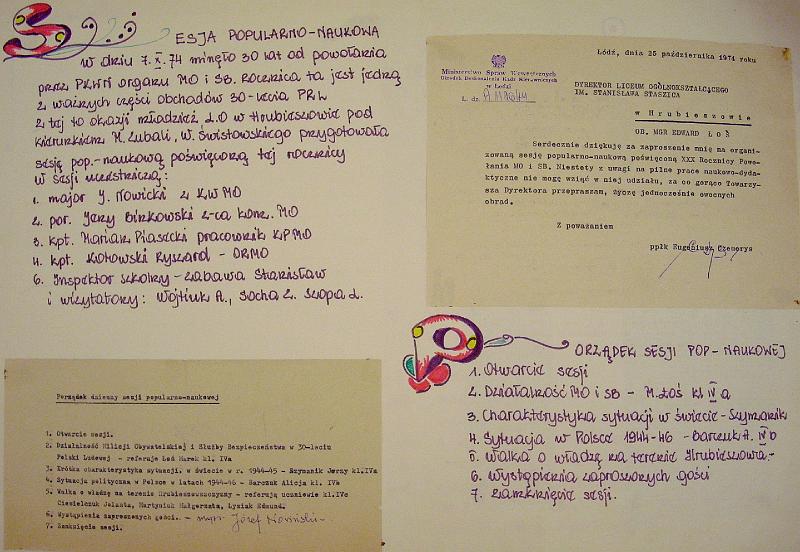 SESJA POPULARNO-NAUKOWA
w dniu 7.X.74 minęło 30 lat od powołania
przez PKWN organu MO i SB. Rocznica ta jest jedną
z ważnych części obchodów 30-lecia PRL
z tej to okazji młodzież L.O w Hrubieszowie pod
kierunkiem M. Lubali, W. Świstowskiego przygotowała
sesję pop.-naukową poświęconą tej rocznicy
W sesji uczestniczą:
1. major J. Nowicki z KWMO
2. por. Jerzy Birkowski z-ca kom. MO
3. kpt. Marian Piasecki pracownik KPMO
4. kpt. Kotowski Ryszard - ORMO
6. Inspektor szkolny - Zabawa Stanisław
i wizytatorzy: Wojtiuk A., Socha Z. Szopa L.
Łódź, dnia 25 października 1974 roku
Ministerstwo Spraw Wewnętrznych
Ośrodek Doskonalenia Kadr Kierowniczych
w Łodzi
L. dz.
DYREKTOR LICEUM OGÓLNOKSZTAŁCĄCEGO
IM. STANISŁAWA STASZICA
w Hrubieszowie
OB. MGR EDWARD ŁOŚ
Serdecznie dziękuję za zaproszenie mnie na organi-
zowaną sesję popularno-naukową poświęconą XXX Rocznicy Powo-
łania MO i SB. Niestety z uwagi na pilne prace naukowo-dyda-
ktyczne nie mogę wziąć w niej udziału, za co gorąco Towarzy-
sza Dyrektora przepraszam, życzę jednocześnie owocnych
obrad.
Z poważaniem
ppłk Eugeniusz Czemerys
PORZĄDEK SESJI POP-NAUKOWEJ
1. Otwarcie sesji
2. Działalność MO i SB - M. Łoś kl IV a
3. Charakterystyka sytuacji w świecie - Szymanik
4. Sytuacja w Polsce 1944-46 - Barczuk A. IV b
5. Walka o władzę na terenie Hrubieszowa.-
6. Wystąpienia zaproszonych gości
7. Zamknięcie sesji.
Porządek dzienny sesji popularno-naukowej
1. Otwarcie sesji.
2. Działalność Milicji Obywatelskiej i Służby Bezpieczeństwa w 30-leciu
Polski Ludowej - referuje Łoś Marek kl. IVa
3. Krótka charakterystyka sytuacji w świecie w r. 1944-45 - Szymanik Jerzy kl.IVa
4. Sytuacja polityczna w Polsce w latach 1944-46 - Barczuk Alicja kl. IVb
5. Walka o władzę na terenie Hrubieszowszczyzny - referują uczniowie kl.IVc
Ciesielczuk Jolanta, Martyniuk Małgorzata, Łysiak Edmund.
6. Wystąpienia zaproszonych gości. - mjr Józef
7. Zamknięcie sesji.